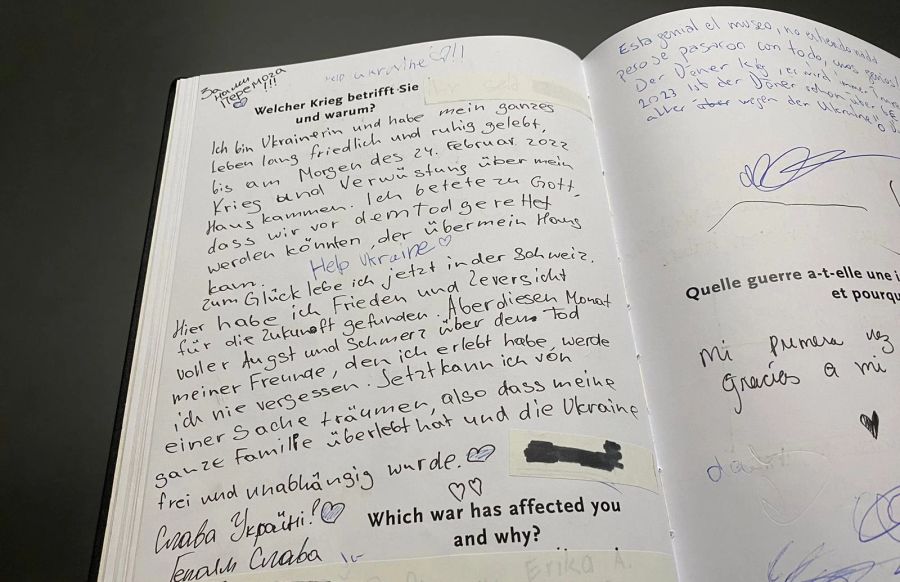 За нашу
Перемогу
!!!
Help Ukraine ♡!!
Welcher Krieg betrifft Sie
und warum?
Ich bin Ukrainerin und habe mein ganzes
leben lang friedlich und ruhig gelebt,
bis am Morgen des 24. Februar 2022
Krieg und Verwüstung über mein
Haus kammen. Ich betete zu Gott,
dass wir vor dem Tod gerettet
werden könnten, der über mein Haus
kam.
Help Ukraine ♡
Zum Glück lebe ich jetzt in der Schweiz.
Hier habe ich Frieden und Zeversicht
für die Zukunft gefunden. Aber diesen Monat
voller Angst und Schmerz über den Tod
meiner Freunde, den ich erlebt habe, werde
ich nie vergessen. Jetzt kann ich von
einer Sache träumen, also dass meine
ganze Familie überlebt hat und die Ukraine
frei und unabhängig wurde.
Слава Україні!
Героям Слава
Which war has affected you
and why?
Erika A.
Esta genial el museo, no entiendo nada
pero se pasaron con todo, unos genios!
Der Döner krieg, es wird immer
2023 ist der Döner schon über
alles über wegen den Ukraine
Quelle guerre a-t-elle une i
et pourq
mi primera vez
Gracias a mi